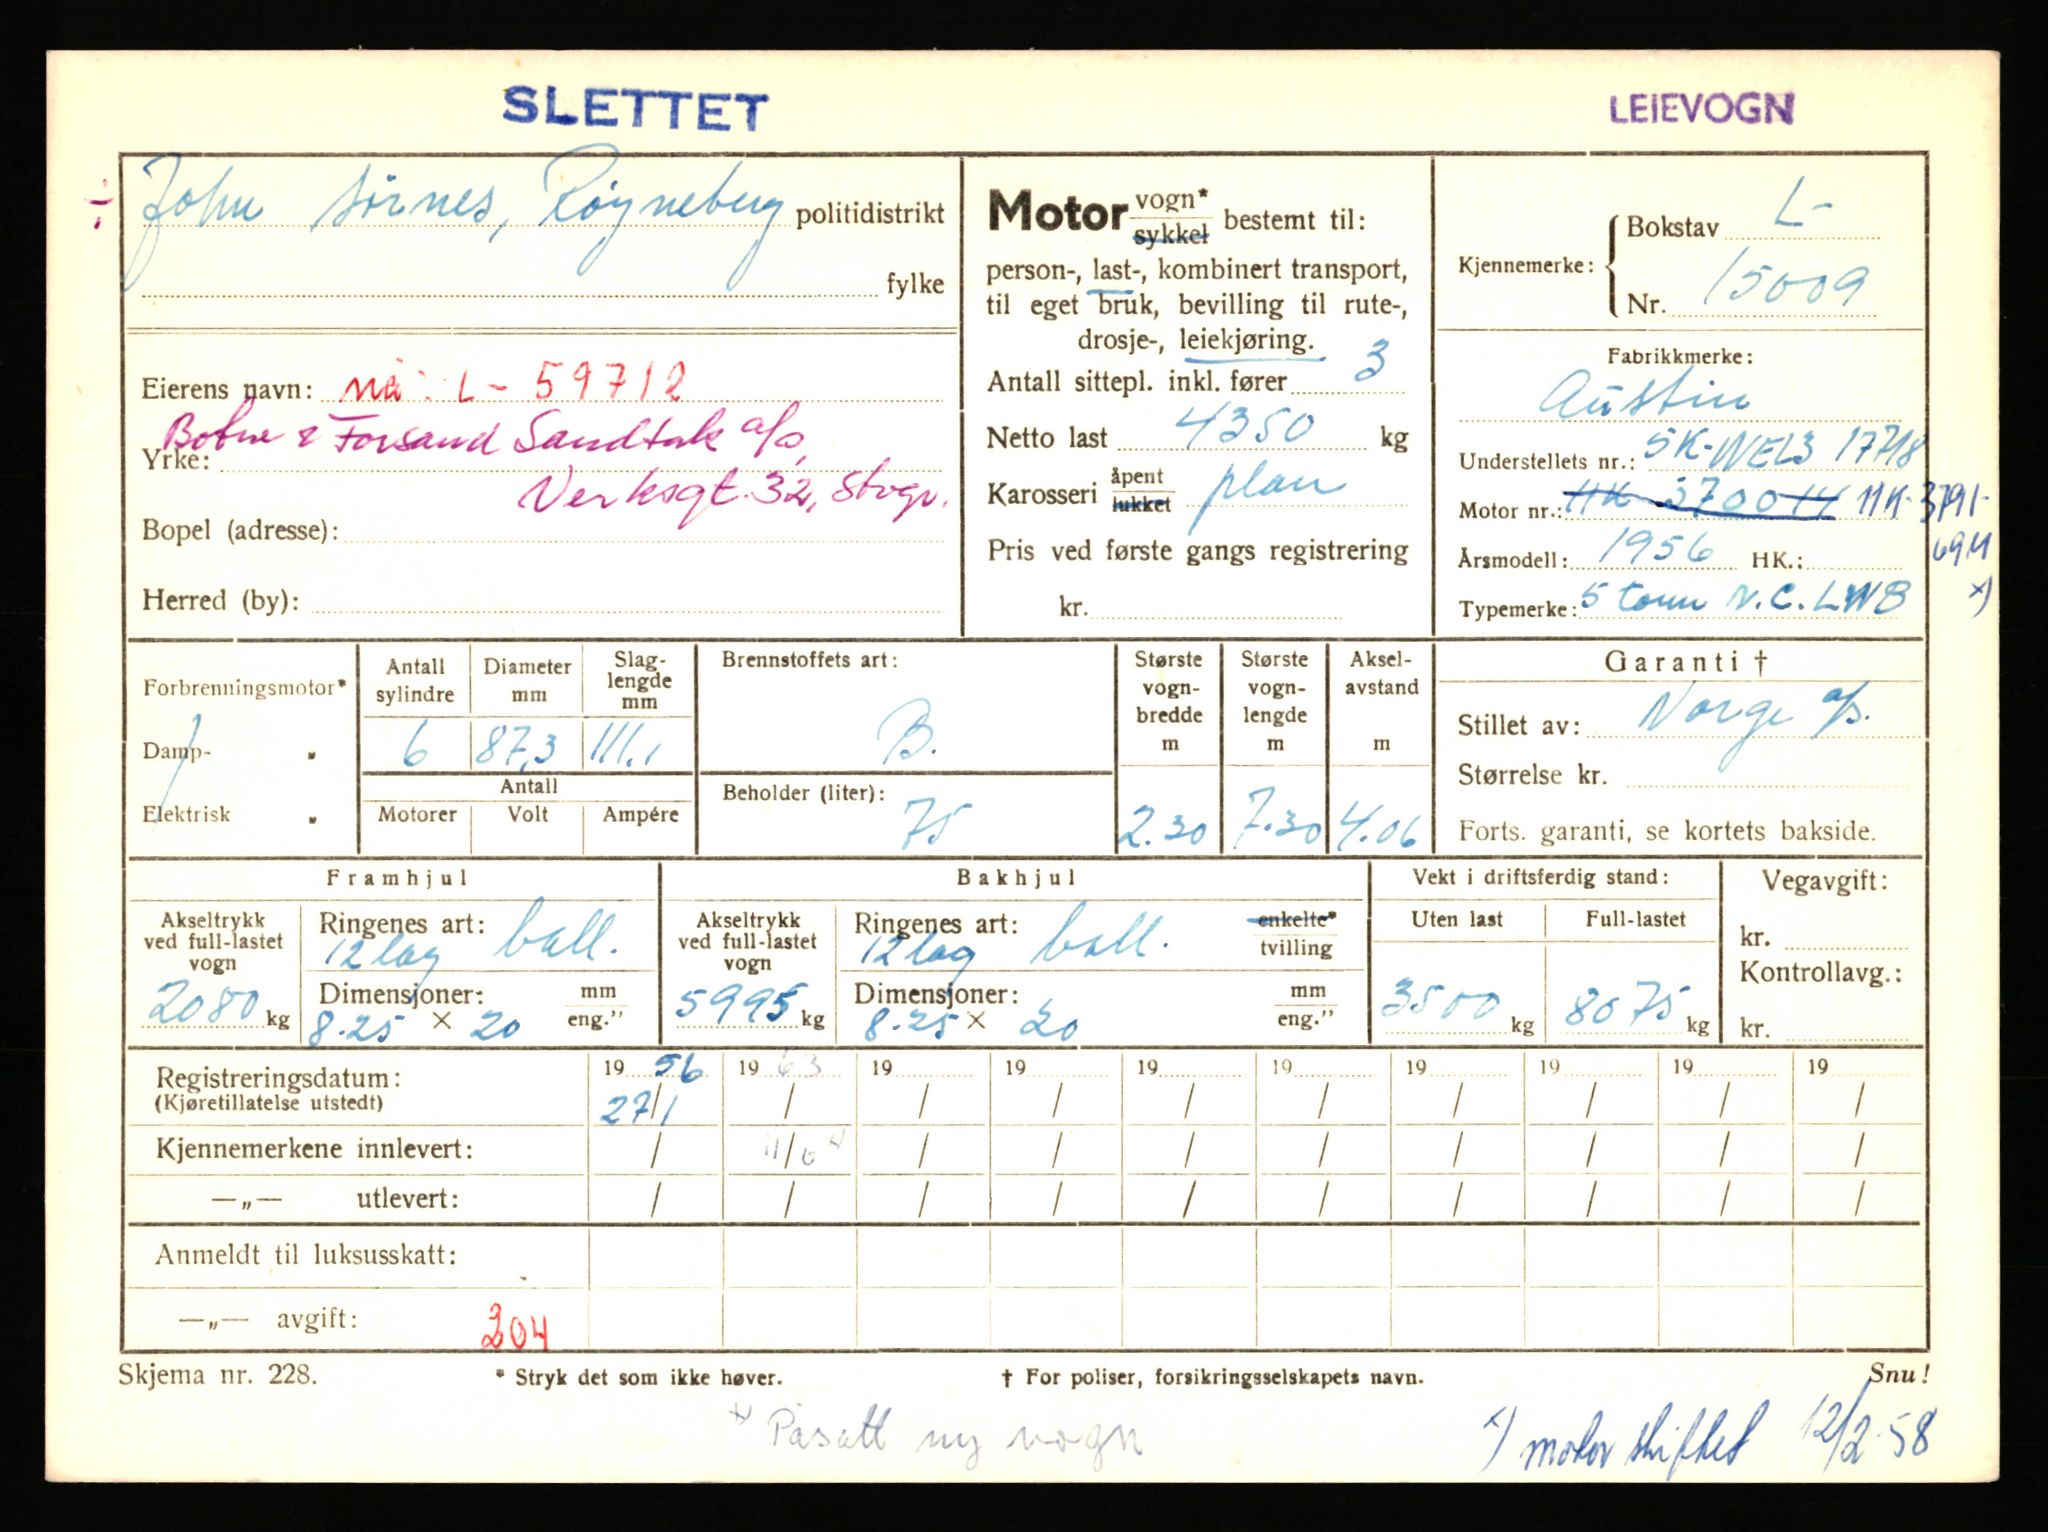 SLETTET
LEIEVOGN
÷ John Sörnes, Røyneberg politidistrikt
fylke
Eierens navn: nå: L-59712
Bofne & Forsand Sandtak a/s,
Yrke:
Verksgt. 32, Stvgr.
Bopel (adresse):
Herred (by):
Motor vogn* sykkel bestemt til:
person-, last-, kombinert transport,
til eget bruk, bevilling til rute-,
drosje-, leiekjøring.
Antall sittepl. inkl. fører 3
Netto last 4350 kg
Karosseri åpent lukket plan
Pris ved første gangs registrering
kr.
Kjennemerke: Bokstav L-
Nr. 15009
Fabrikkmerke:
Austin
Understellets nr.: 5K-WEL3 17718
Motor nr.: 11K-3791-
69M
Årsmodell: 1956 HK.:
Typemerke: 5 tonn N.C. LWB x)
Forbrenningsmotor*
Damp- „
Elektrisk „
Antall sylindre 6
Diameter mm 87,3
Slag-lengde mm 111,1
Antall
Motorer Volt Ampére
Brennstoffets art: B.
Beholder (liter): 75
Største vogn-bredde m 2.30
Største vogn-lengde m 7.30
Aksel-avstand m 4.06
Garanti †
Stillet av: Norge a/s.
Størrelse kr.
Forts. garanti, se kortets bakside.
Framhjul
Akseltrykk ved full-lastet vogn 2080 kg
Ringenes art: 12 lag ball.
Dimensjoner: 8.25 × 20 mm eng."
Bakhjul
Akseltrykk ved full-lastet vogn 5995 kg
Ringenes art: 12 lag ball. enkelte* tvilling
Dimensjoner: 8.25 × 20 mm eng."
Vekt i driftsferdig stand:
Uten last 3500 kg
Full-lastet 8075 kg
Vegavgift:
kr.
Kontrollavg.:
kr.
Registreringsdatum: 19 56 19 63 19 19 19 19 19 19 19 19
(Kjøretillatelse utstedt) 27/1 / / / / / / / / /
Kjennemerkene innlevert: / 11/6 x) / / / / / / / /
—„— utlevert: / / / / / / / / / /
Anmeldt til luksusskatt:
—„— avgift: 204
Skjema nr. 228.
* Stryk det som ikke høver.
† For poliser, forsikringsselskapets navn.
Snu!
x) Påsatt ny vogn
x) motor skiftet 12/2-58